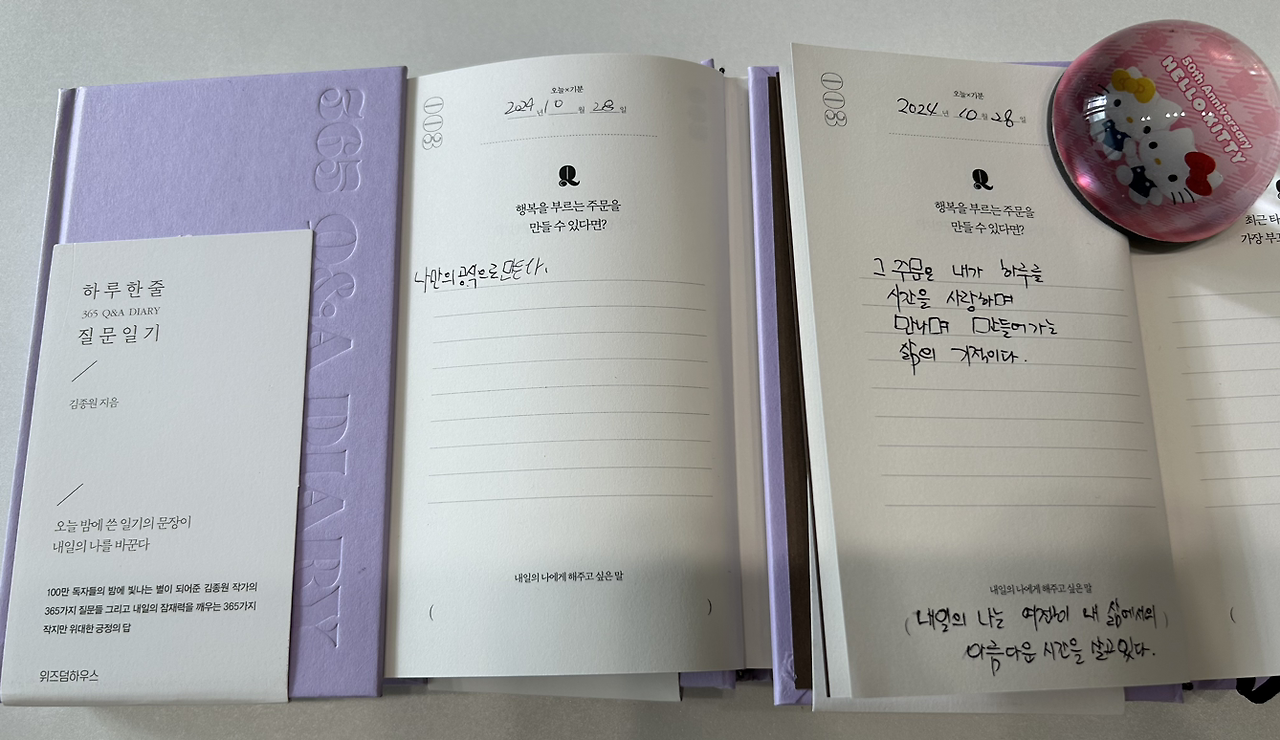 365 Q&A DIARY
하루 한 줄
365 Q&A DIARY
질문 일기
김종원 지음
오늘 밤에 쓴 일기의 문장이
내일의 나를 바꾼다
100만 독자들의 밤에 빛나는 별이 되어준 김종원 작가의
365가지 질문들 그리고 내일의 잠재력을 깨우는 365가지
작지만 위대한 긍정의 답
위즈덤하우스
003
오늘×기분
2024년 10월 28일
Q
행복을 부르는 주문을
만들 수 있다면?
나만의 공식으로 만든다.
내일의 나에게 해주고 싶은 말
( )
003
오늘×기분
2024년 10월 28일
Q
행복을 부르는 주문을
만들 수 있다면?
그 주문은 내가 하루를
시간을 사랑하며
만나며 만들어가는
삶의 기적이다.
내일의 나에게 해주고 싶은 말
(내일의 나는 여전히 내 삶에서의)
아름다운 시간을 살고있다.
50th Anniversary
HELLO KITTY
최근
가장
(